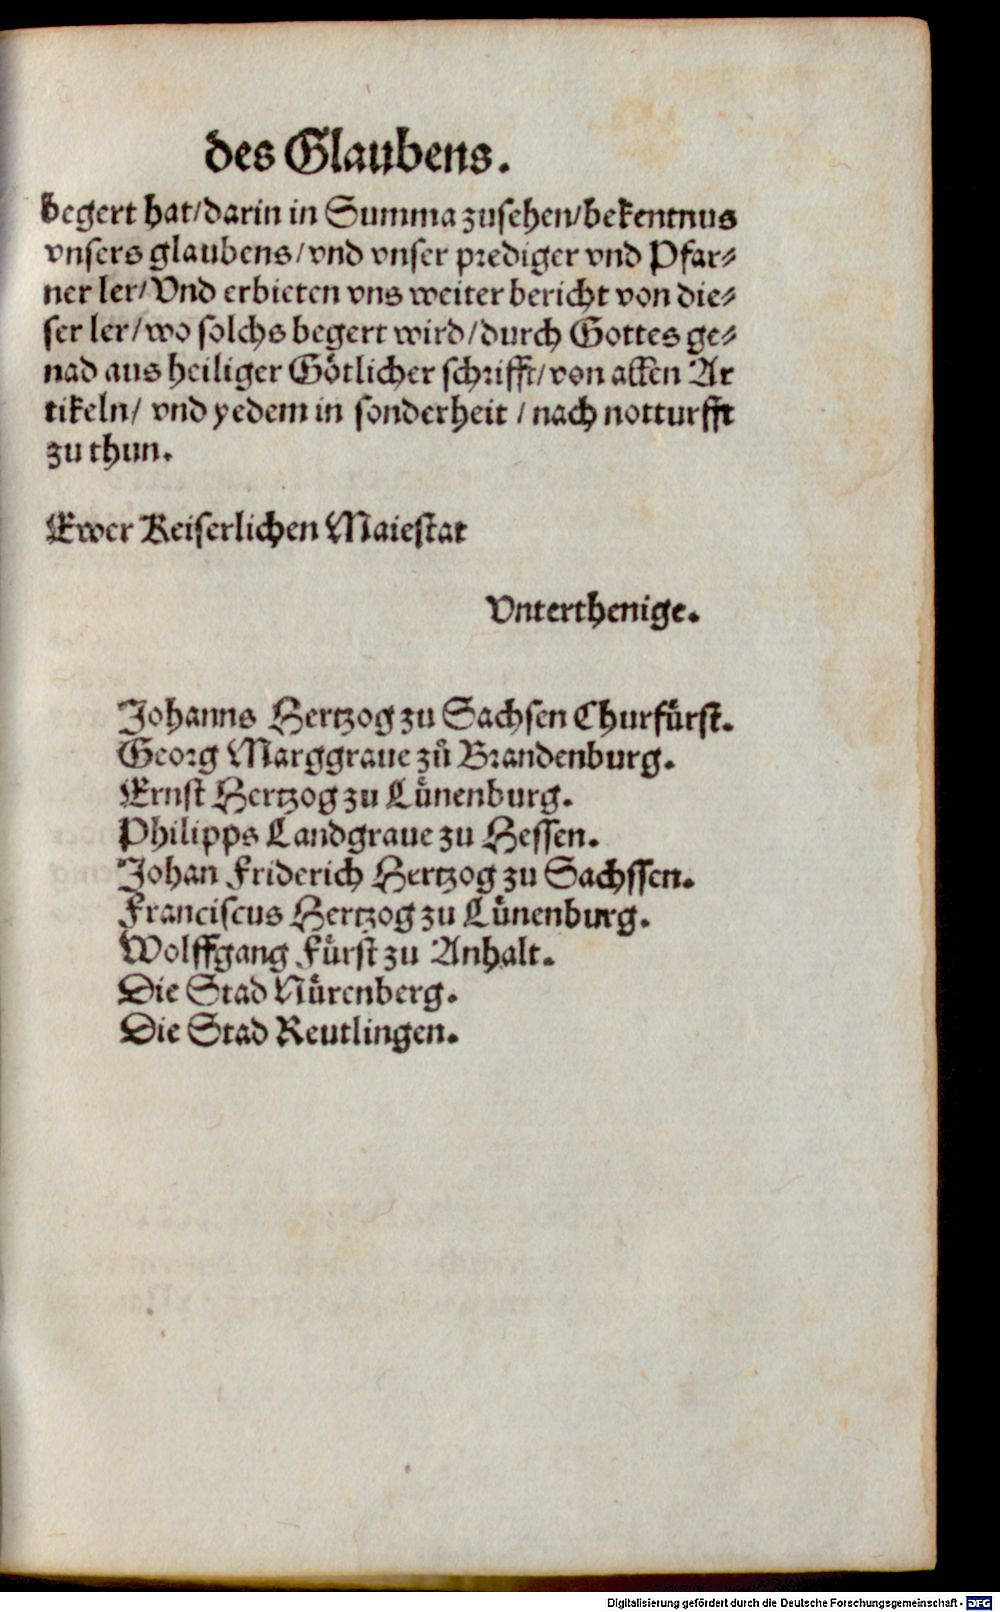 des Glaubens.
begert hat/darin in Summa zusehen/bekentnus
vnsers glaubens/vnd vnser prediger vnd Pfar⸗
ner ler/Vnd erbieten vns weiter bericht von die⸗
ser ler/wo solchs begert wird/durch Gottes ge⸗
nad aus heiliger Götlicher schrifft/von allen Ar
tikeln/ vnd yedem in sonderheit / nach notturfft
zu thun.
Ewer Keiserlichen Maiestat
Vnterthenige.
Johanns Hertzog zu Sachsen Churfürst.
Georg Marggraue zů Brandenburg.
Ernst Hertzog zu Lünenburg.
Philipps Landgraue zu Hessen.
Johan Friderich Hertzog zu Sachssen.
Franciscus Hertzog zu Lünenburg.
Wolffgang Fürst zu Anhalt.
Die Stad Nürenberg.
Die Stad Reutlingen.
Digitalisierung gefördert durch die Deutsche Forschungsgemeinschaft - DFG